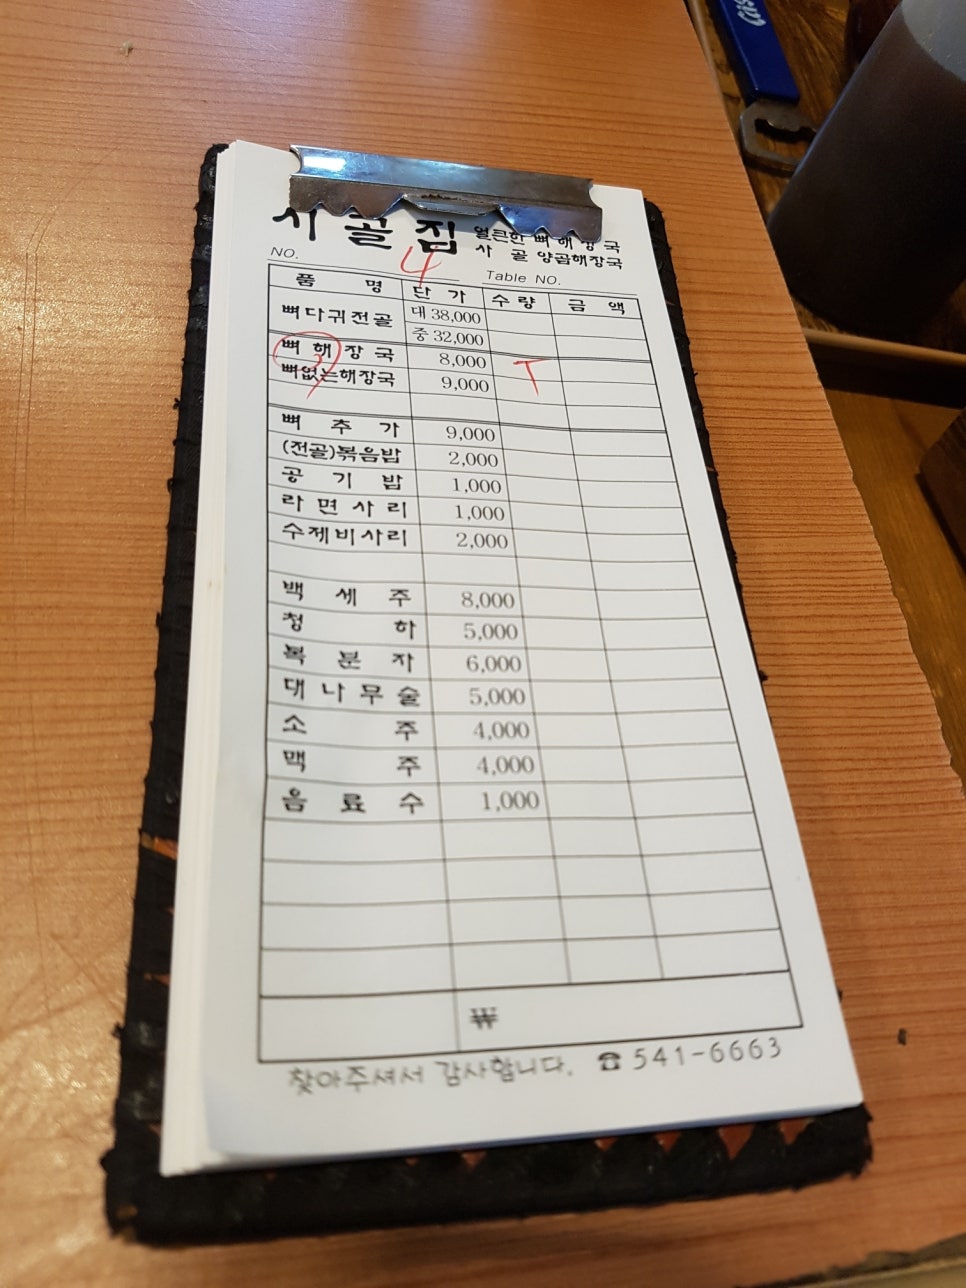 시골집 얼큰한 뼈해장국
사골 양곱해장국
NO. 4 Table NO.
품명 단가 수량 금액
뼈다귀전골 대 38,000
중 32,000
뼈해장국 8,000 T
뼈없는해장국 9,000
뼈추가 9,000
(전골)볶음밥 2,000
공기밥 1,000
라면사리 1,000
수제비사리 2,000
백세주 8,000
청하 5,000
복분자 6,000
대나무술 5,000
소주 4,000
맥주 4,000
음료수 1,000
₩
찾아주셔서 감사합니다. ☎ 541-6663